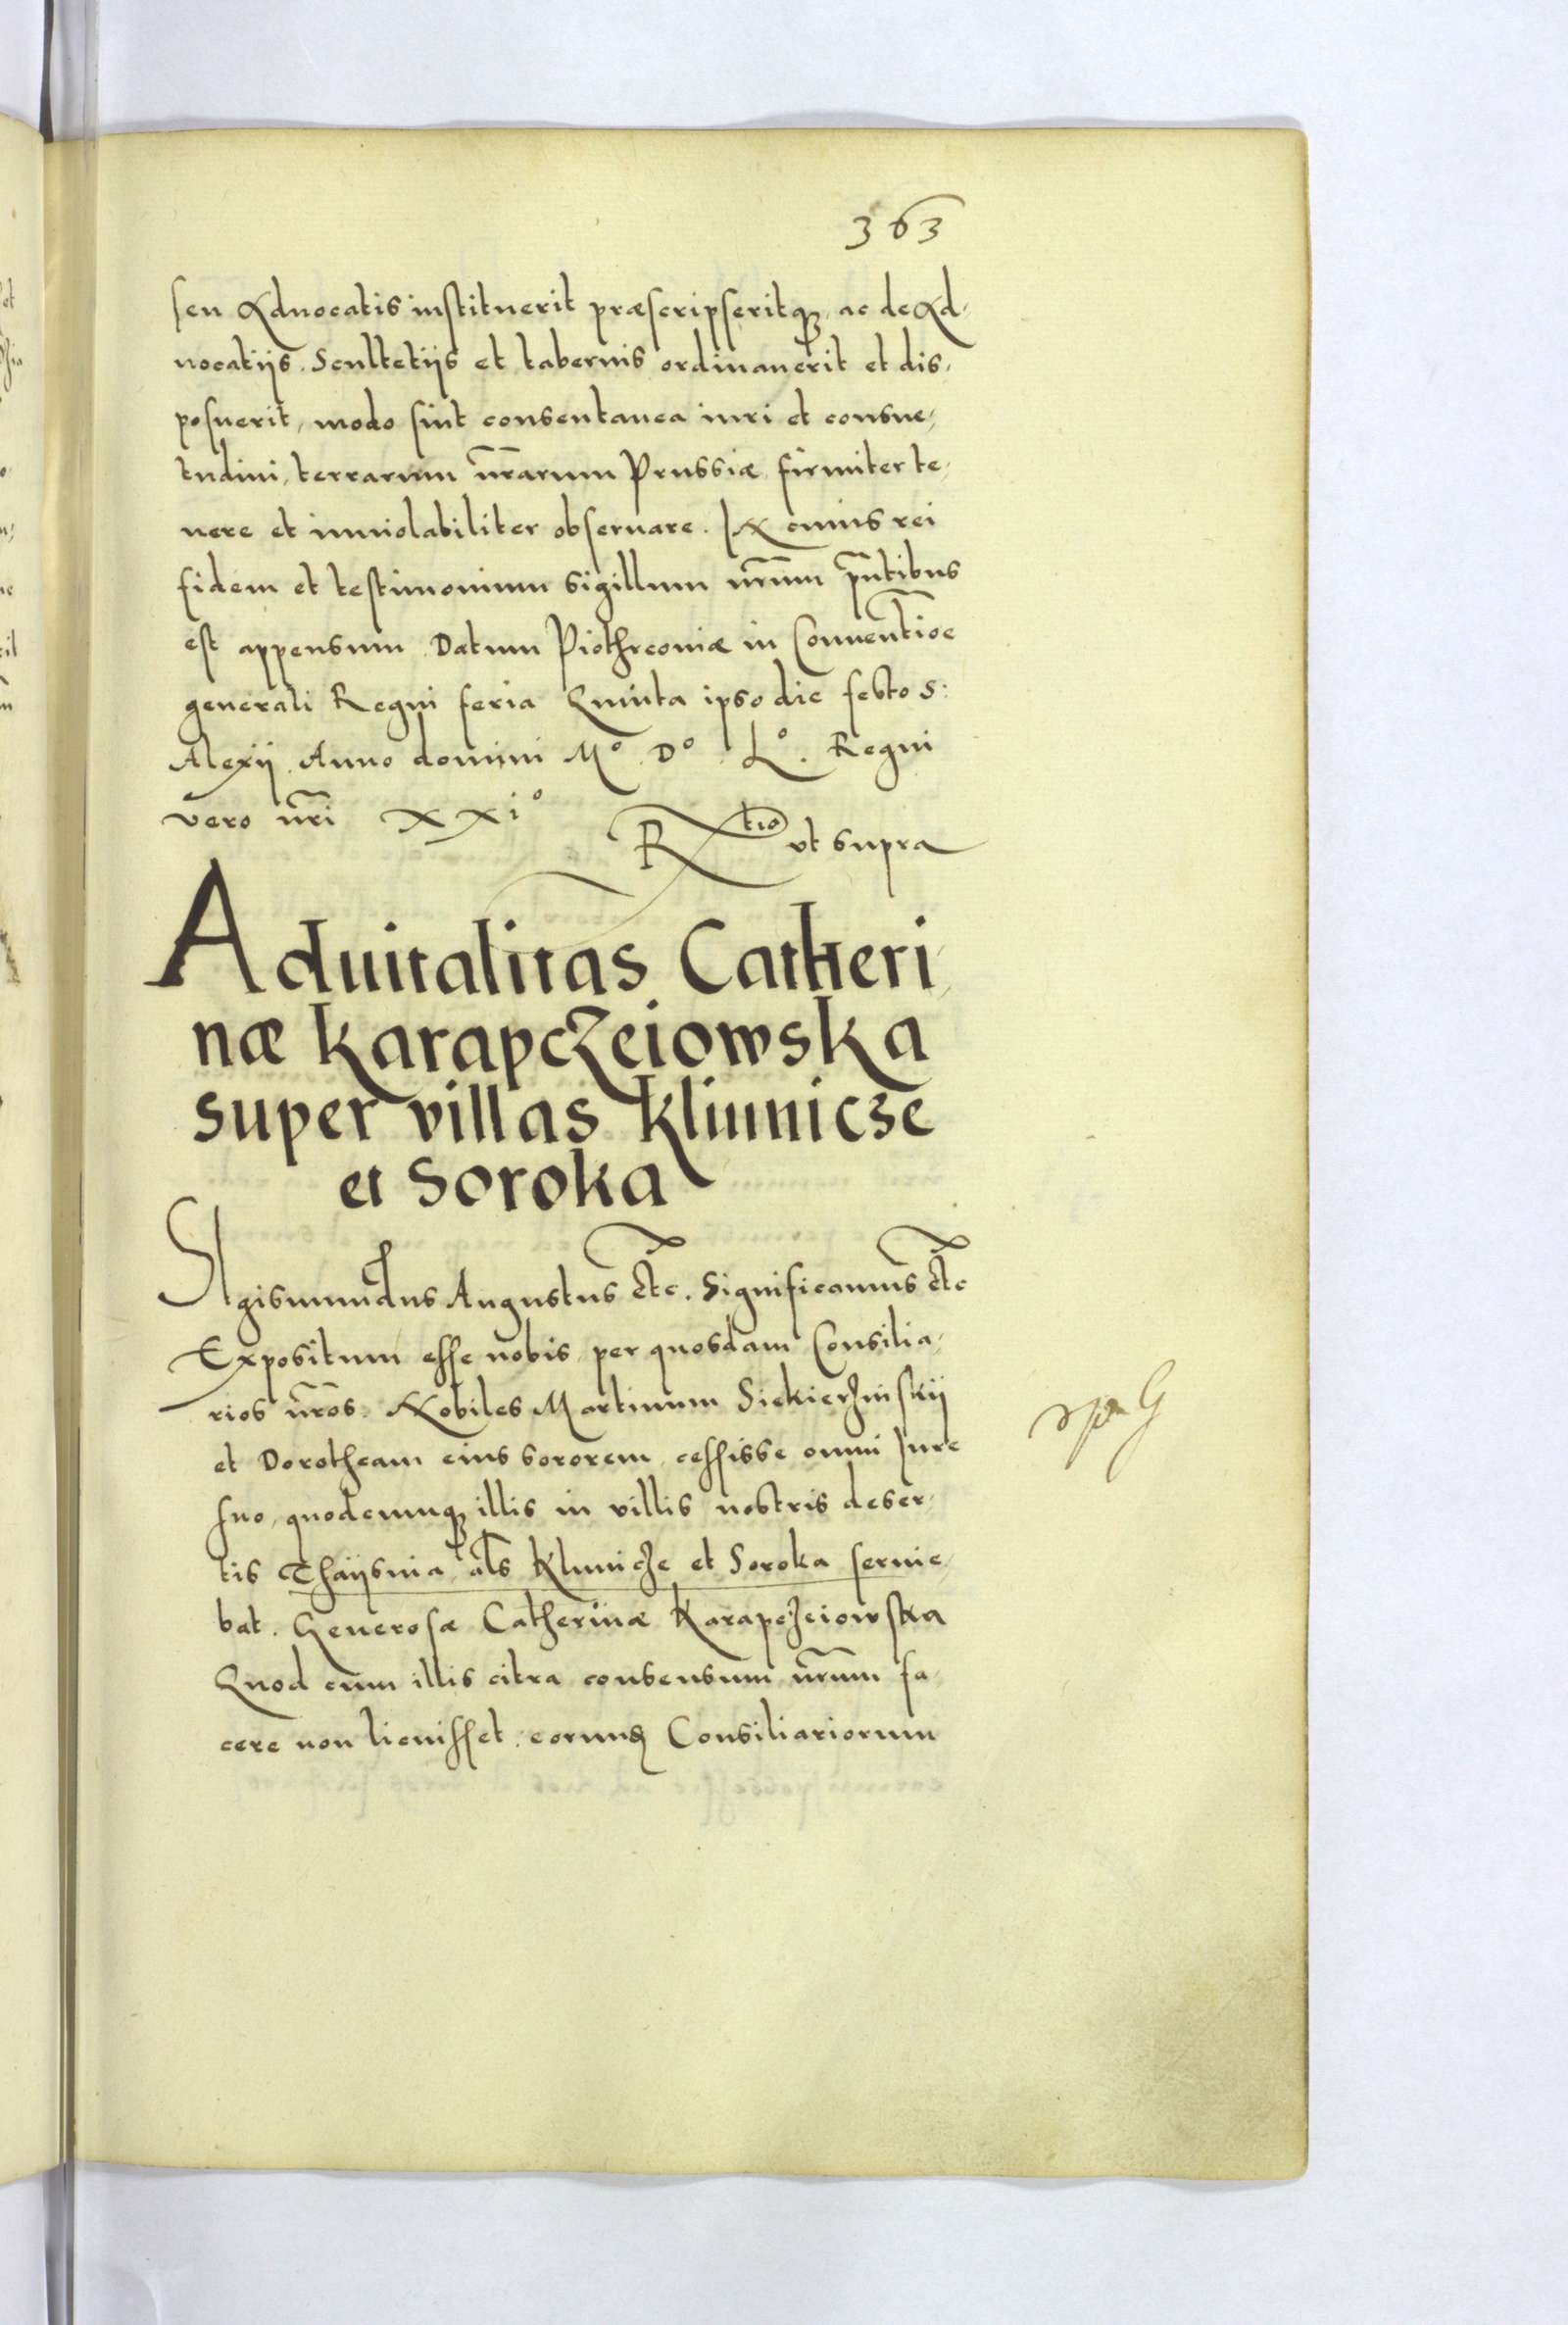 363
seu Aduocatis instituerit præscripseritqȝ, ac de Ad,
uocatijs. Scultetijs et tabernis ordinauerit et dis,
posuerit, modo sint consentanea iuri et consue,
tudini, terrarum nr̄arum Prussiæ firmiter te,
nere et inuiolabiliter obseruare. IN cuius rei
fidem et testimonium sigillum nr̄um pn̄tibus
est appensum. Datum Piothrcouiæ in Conuentioē
generali Regni feria Quinta ipso die festo S:
Alexij. Anno domini Mº. Dº. Lº. Regni
vero nr̄i XXiº
Rtio vt supra
Aduitalitas Catheri,
næ Karapczeiowska
super villas Kliunicze
et Soroka
SIgismundus Augustus etc̄. Significamus etc̄
Expositum esse nobis per quosdam Consilia,
rios nr̄os. Nobiles Martinum Siekierzinskij
et Dorotheam eius sororem, cessisse omni Jure
suo, quodcumqȝ illis in villis nostris deser,
tis Thaijsnia als Kliunicze et Soroka seruie,
bat. Generosæ Catherinæ Karapczeiowska
Quod cum illis citra consensum nr̄um fa,
cere non licuisset: eorumꝗ Consiliariorum